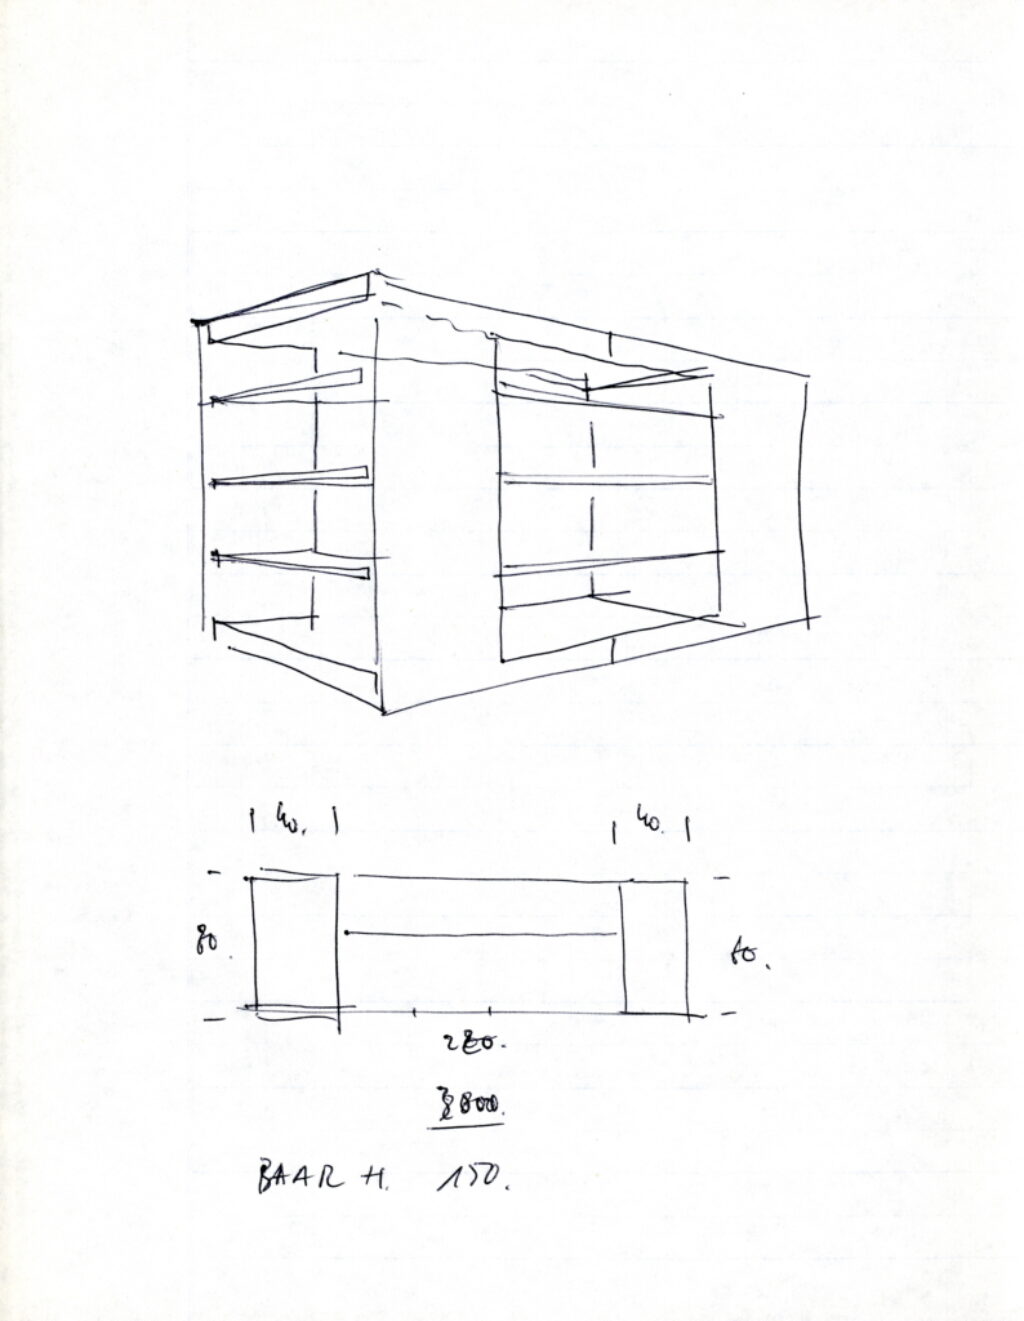 40. 40.
80. 80.
280.
BAAR H. 150.